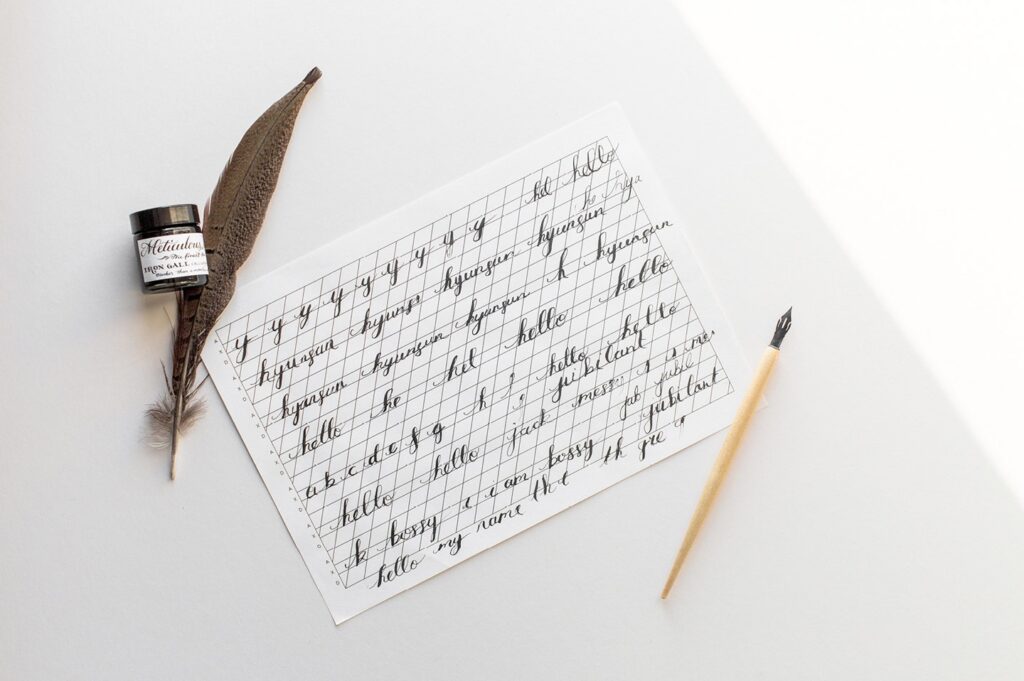 Meticulous
The finest
IRON GALL
y y y y y y y hel hello
hyunsun hyuns hyunsun hyunsun he hya
hyunsun hyunsun hyunsun h hyunsun
hello he hel hello hello
a b c d e f g h i j hello hello
hello hello jack mess
jubilant
b bossy i i am bossy jab jubil
jubilant
hello my name the th